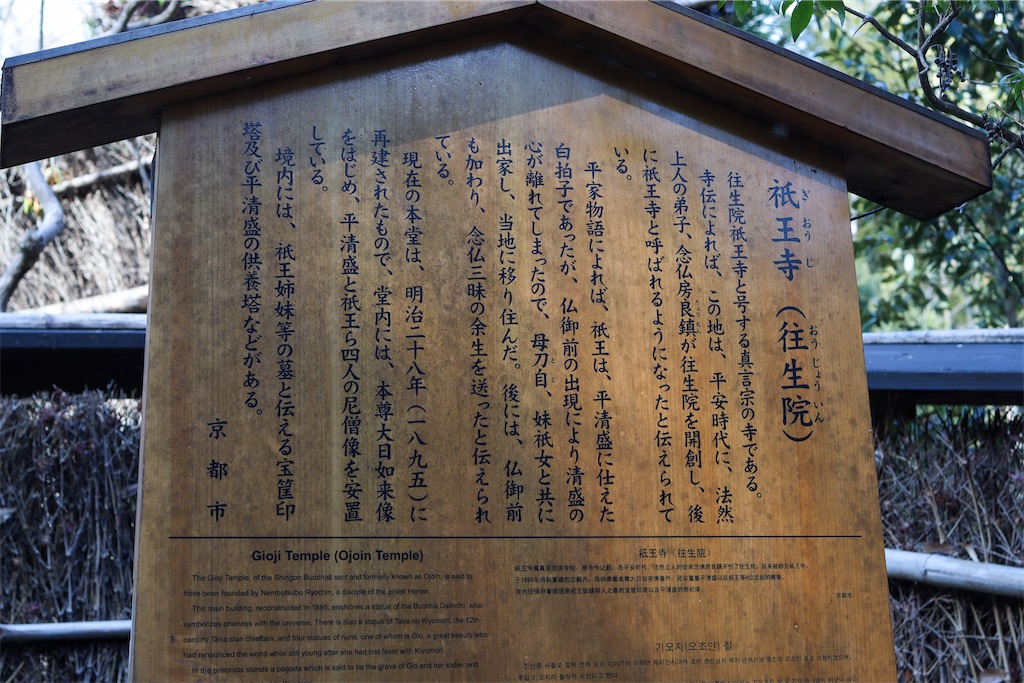 祇王寺（往生院）
ぎおうじ
おうじょういん
往生院祇王寺と号する真言宗の寺である。
寺伝によれば、この地は、平安時代に、法然
上人の弟子、念仏房良鎮が往生院を開創し、後
に祇王寺と呼ばれるようになったと伝えられて
いる。
平家物語によれば、祇王は、平清盛に仕えた
白拍子であったが、仏御前の出現により清盛の
心が離れてしまったので、母刀自、妹祇女と共に
出家し、当地に移り住んだ。後には、仏御前
も加わり、念仏三昧の余生を送ったと伝えられ
ている。
現在の本堂は、明治二十八年（一八九五）に
再建されたもので、堂内には、本尊大日如来像
をはじめ、平清盛と祇王ら四人の尼僧像を安置
している。
境内には、祇王姉妹等の墓と伝える宝筐印
塔及び平清盛の供養塔などがある。
京都市
Gioji Temple (Ojoin Temple)
The Gioji Temple, of the Shingon Buddhist sect and formerly known as Ojoin, is said to
have been founded by Nembutsubo Ryochin, a disciple of the priest Honen.
The main building, reconstructed in 1895, enshrines a statue of the Buddha Dainichi, who
symbolizes oneness with the universe. There is also a statue of Taira no Kiyomori, the 12th
century Taira clan chieftain, and four statues of nuns, one of whom is Gio, a great beauty who
had renounced the world while still young after she had lost favor with Kiyomori.
In the precincts stands a pagoda which is said to be the grave of Gio and her sister, and
祇王寺（往生院）
京都市
기오지(오조인) 절